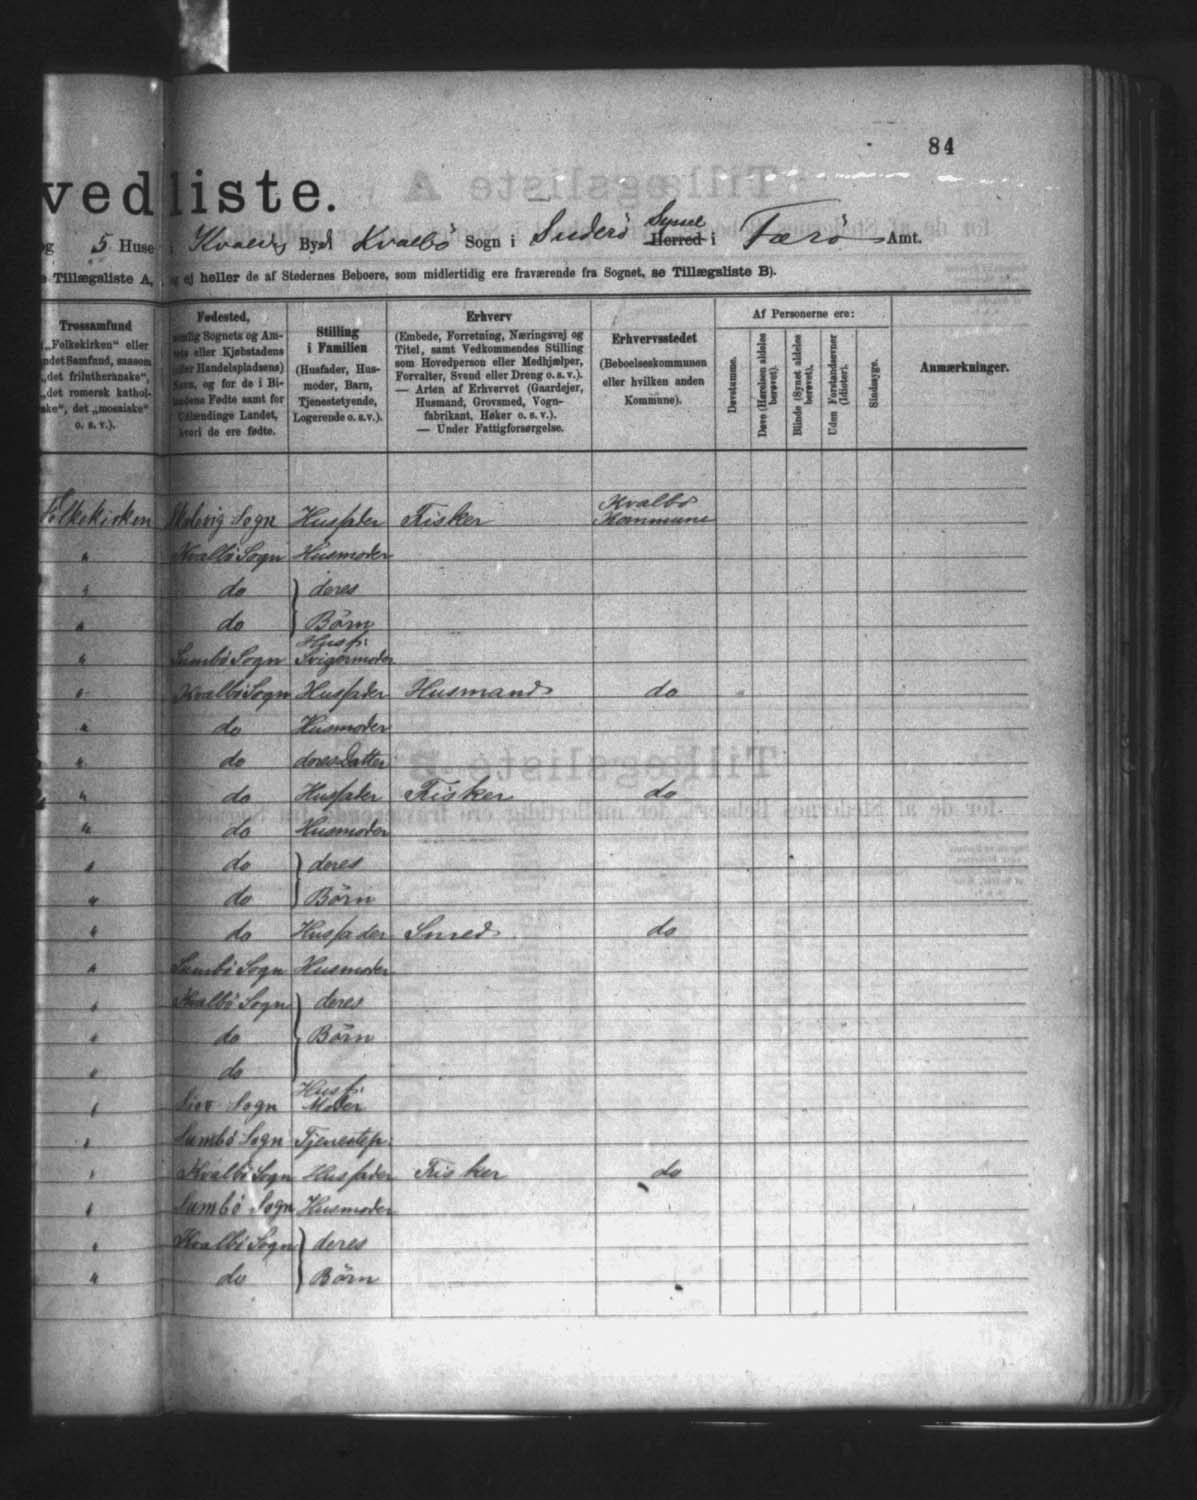 84
vedliste.
og 5 Huse i Kvalvig By Kvalbø Sogn i Suderø Syssel Herred i Færø Amt.
Tillægsliste A, og ej heller de af Stedernes Beboere, som midlertidig ere fraværende fra Sognet, se Tillægsliste B).
Trossamfund
(„Folkekirken“ eller
andet Samfund, saasom
„det frilutheranske“,
„det romersk kathol-
ske“, det „mosaiske“
o. s. v.).
Fødested,
nemlig Sognets og Am-
tets eller Kjøbstadens
(eller Handelspladsens)
Navn, og for de i Bi-
landene Fødte samt for
Udlændinge Landet,
hvori de ere fødte.
Stilling
i Familien
(Husfader, Hus-
moder, Barn,
Tjenestetyende,
Logerende o. s. v.).
Erhverv
(Embede, Forretning, Næringsvej og
Titel, samt Vedkommendes Stilling
som Hovedperson eller Medhjælper,
Forvalter, Svend eller Dreng o. s. v.).
— Arten af Erhvervet (Gaardejer,
Husmand, Grovsmed, Vogn-
fabrikant, Høker o. s. v.).
— Under Fattigforsørgelse.
Erhvervsstedet
(Beboelseskommunen
eller hvilken anden
Kommune).
Af Personerne ere:
Døvstumme.
Døve (Hørelsen aldeles berøvet).
Blinde (Synet aldeles berøvet).
Uden Forstandsevner (Idioter).
Sindssyge.
Anmærkninger.
Folkekirken Midvig Sogn Husfader Fisker Kvalbø Kommune
" Kvalbø Sogn Husmoder
" do deres
" do Børn
" Sumbø Sogn Husf: Svigermoder
" Kvalbø Sogn Husfader Husmand do
" do Husmoder
" do deres Datter
" do Husfader Fisker do
" do Husmoder
" do deres
" do Børn
" do Husfader Smed do
" Sumbø Sogn Husmoder
" Kvalbø Sogn deres
" do Børn
" do
" Sogn Husf: Moder
" Sumbø Sogn Tjenestep:
" Kvalbø Sogn Husfader Fisker do
" Sumbø Sogn Husmoder
" Kvalbø Sogn deres
" do Børn